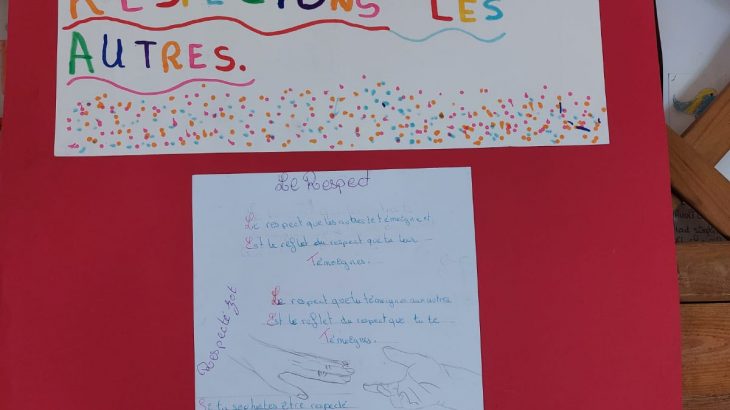 RESPECTONS LES
AUTRES.
Le Respect
Le respect que les autres te témoignent
Est le reflet du respect que tu leur
Témoignes.
Le respect que tu témoignes aux autres
Est le reflet du respect que tu te
Témoignes.
Respecte
Si tu souhaites être respecté